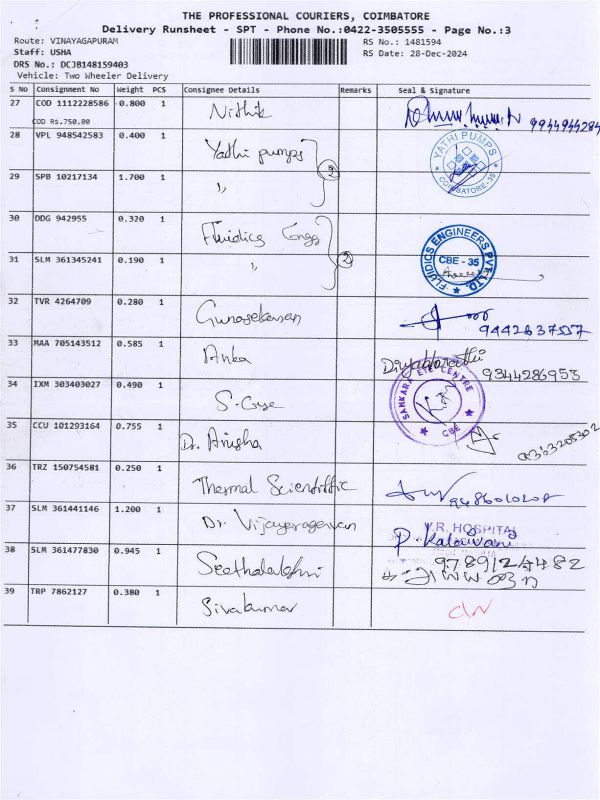 THE PROFESSIONAL COURIERS, COIMBATORE
Delivery Runsheet - SPT - Phone No.:0422-3505555 - Page No.:3
Route: VINAYAGAPURAM
RS No.: 1481594
Staff: USHA
RS Date: 28-Dec-2024
DRS No.: DCJB148159403
Vehicle: Two Wheeler Delivery
S No Consignment No Weight PCS Consignee Details Remarks Seal & Signature
27 COD 1112228586 0.800 1 Nithik 9944944284
COD Rs.750.00
28 VPL 948542583 0.400 1 Yathi pumps 2
YATHI PUMPS COIMBATORE-35
29 SPB 10217134 1.700 1 〃
30 DDG 942955 0.320 1 Fluidics Engg 2
FLUIDICS ENGINEERS PVT LTD. CBE - 35
31 SLM 361345241 0.190 1 〃
32 TVR 4264709 0.280 1 Gunasekaran 9442637557
33 MAA 705143512 0.585 1 Anka Divyabharathi 9344286953
34 IXM 303403027 0.490 1 S-Eye
SANKARA EYE CENTRE CBE
35 CCU 101293164 0.755 1 Dr. Anusha
36 TRZ 150754581 0.250 1 Thermal Scientific
37 SLM 361441146 1.200 1 Dr. Vijayaragavan
V.R. HOSPITAL
P. Kalaivani
38 SLM 361477830 0.945 1 Seethalakshmi 9789124482
39 TRP 7862127 0.380 1 Sivakumar